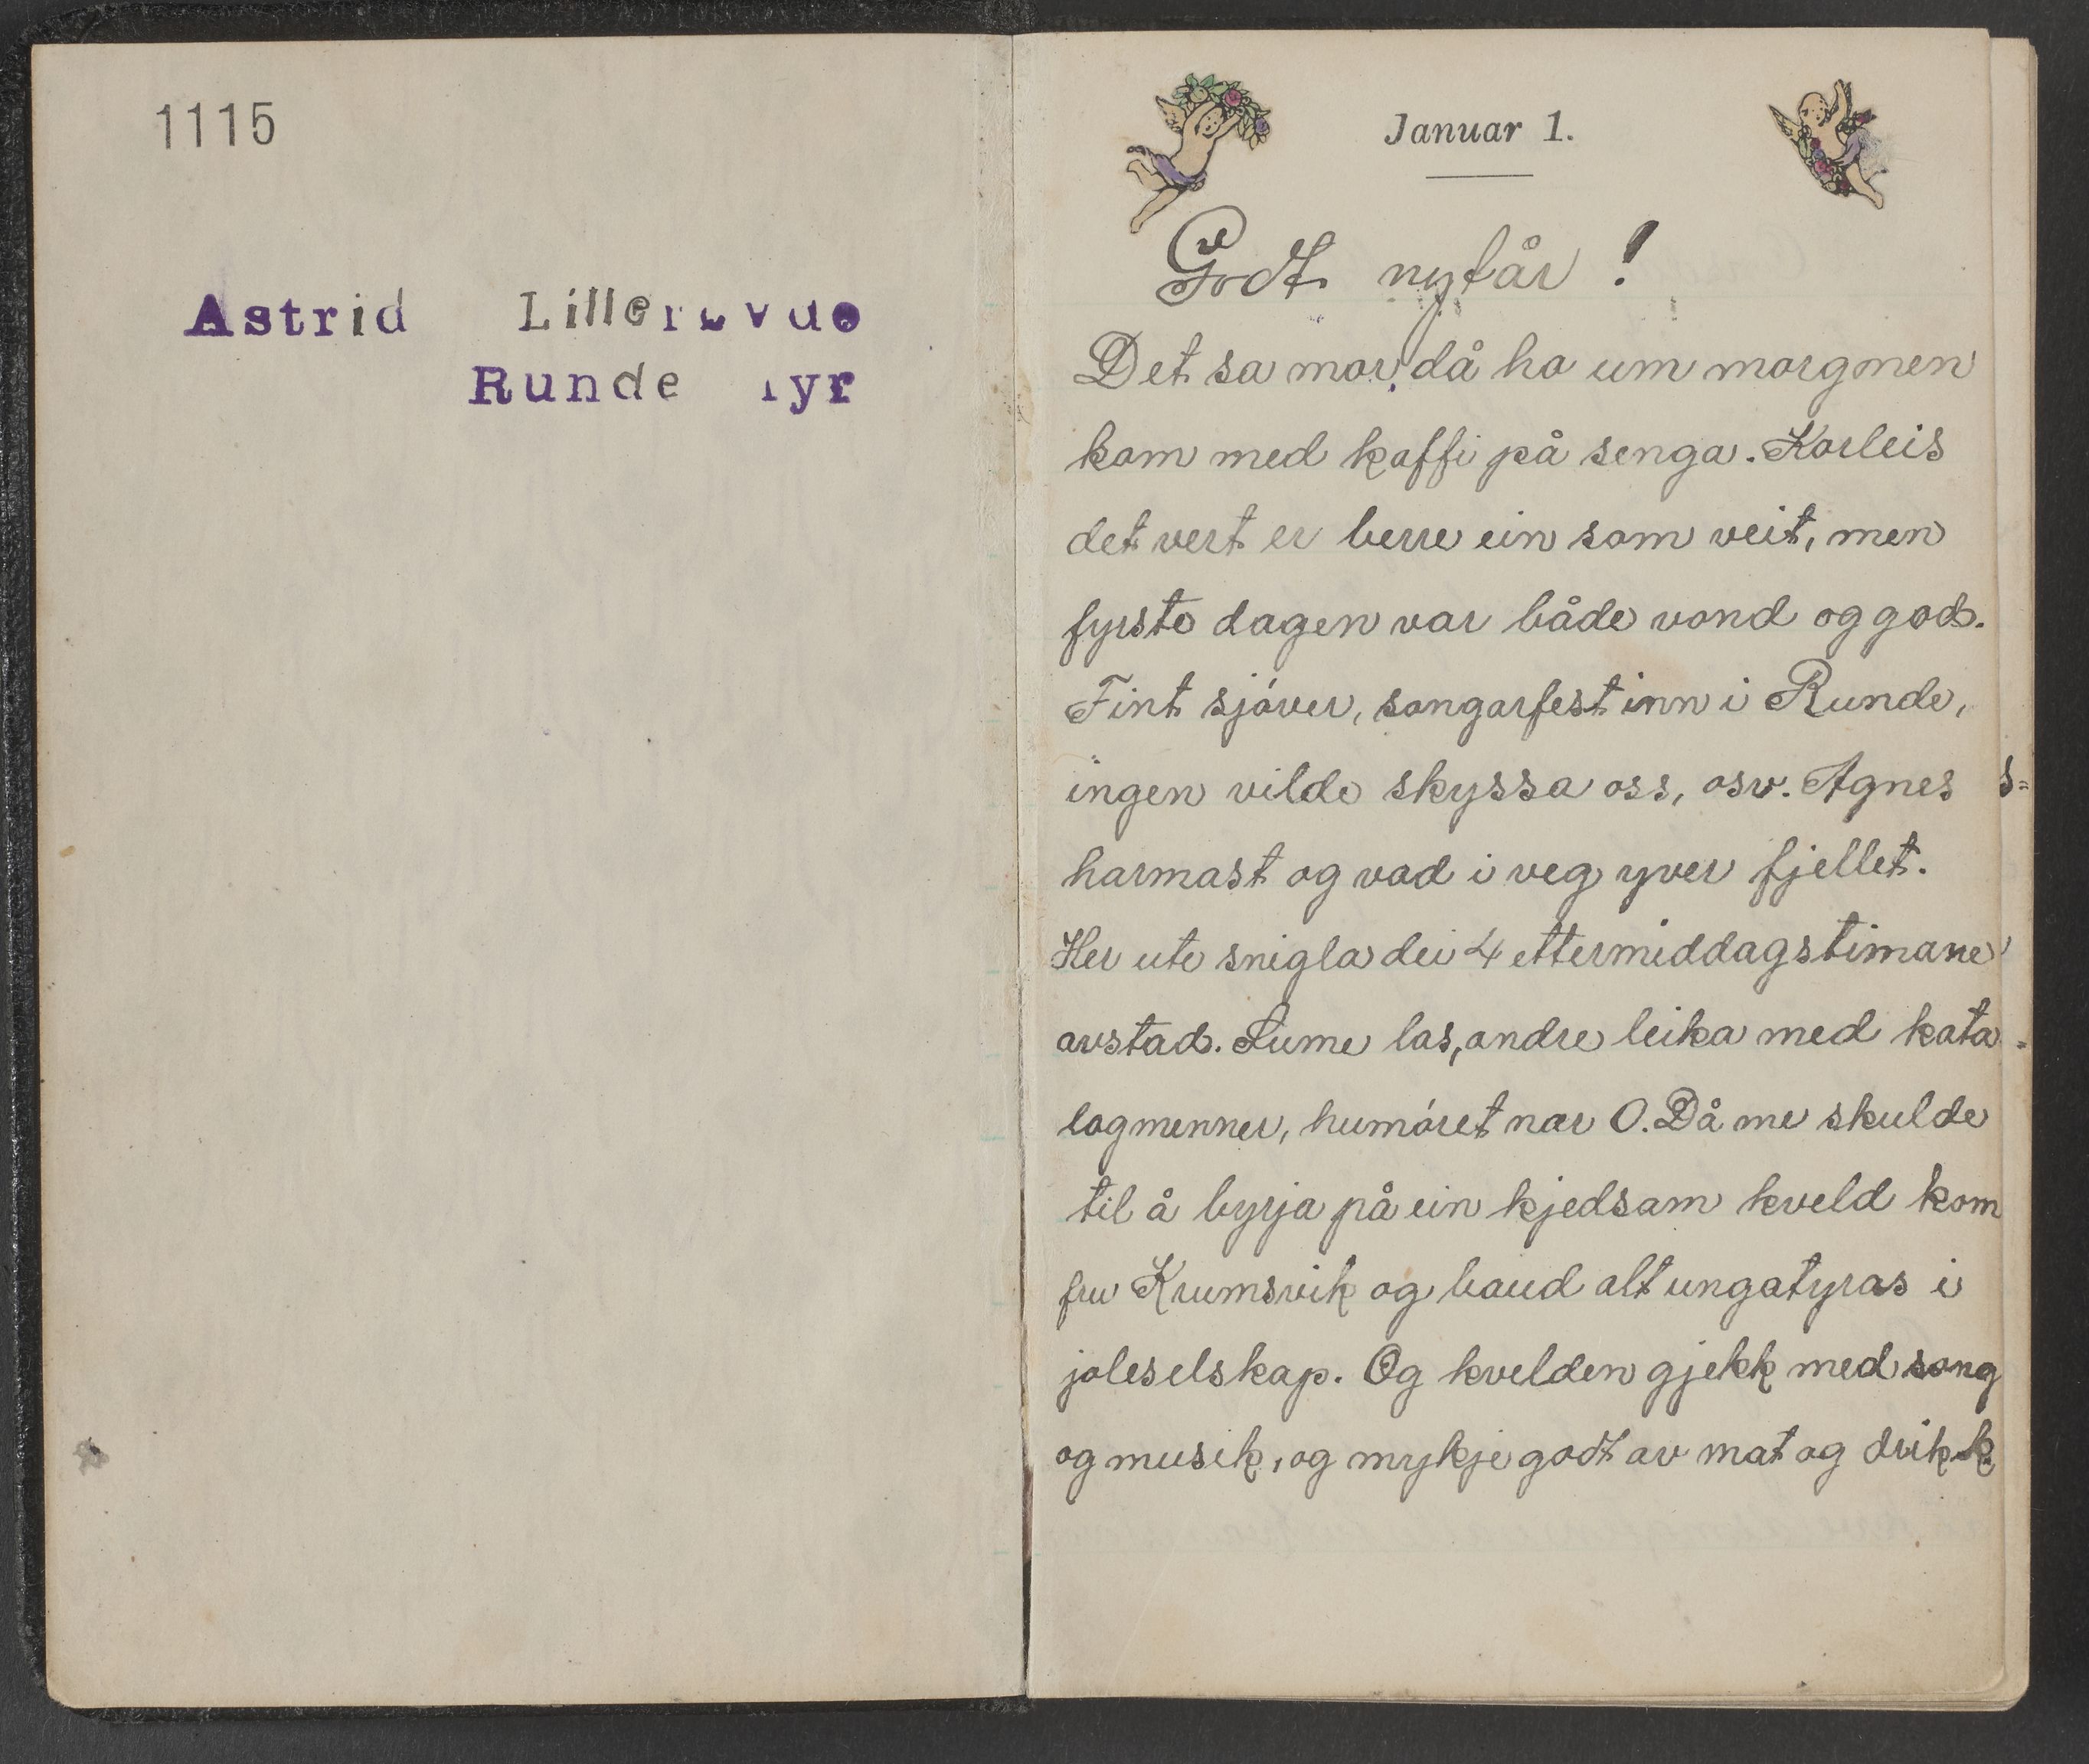 1115
Astrid
Runde fyr
Januar 1.
Godt nytår!
Det sa mor, då ho um morgnen
kom med kaffi på senga. Korleis
det vert er berre ein som veit, men
fyrste dagen var både vond og god.
Fint sjóver, songarfest inn i Runde,
ingen vilde skyssa oss, osv. Agnes
harmast og vod i veg yver fjellet.
Her ute snigla dei 4 ettermiddagstimane
avstad. Sume las, andre leika med kata-
logmenner, humóret var 0. Då me skulde
til å byrja på ein kjedsam kveld kom
fru Krumsvik og baud alt ungatyras i
joleselskap. Og kvelden gjekk med song
og musik, og mykje godt av mat og drikk
s=